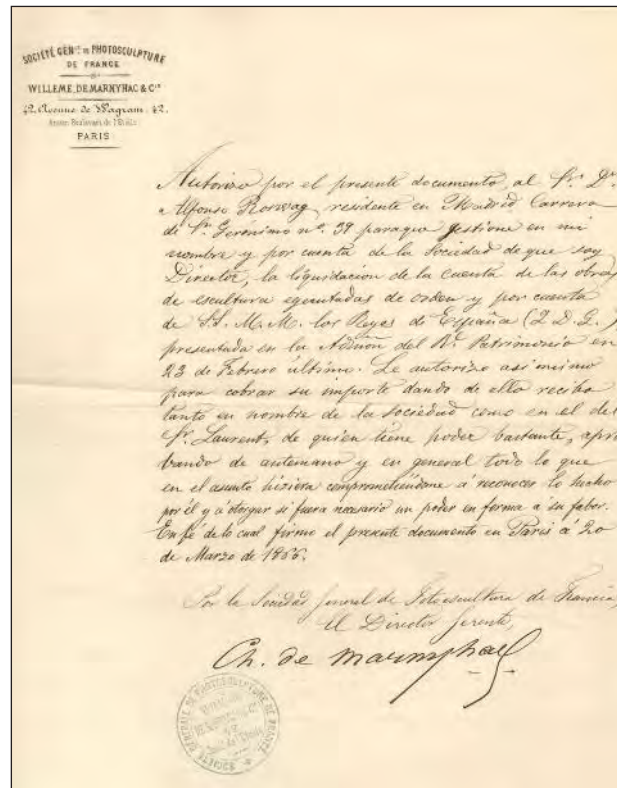 SOCIÉTÉ GÉN.LE DE PHOTOSCULPTURE
DE FRANCE
WILLEME, DE MARNYHAC & Cie
42, Avenue de Wagram, 42.
Ancien Boulevart de l'Etoile
PARIS
Autorizo por el presente documento, al Sr. Dn.
Alfonso Roswag, residente en Madrid Carrera
de Sn. Geronimo nº. 39 paraqe gestione en mi
nombre y por cuenta de la Sociedad de que soy
Director, la liquidacion de la cuenta de las obras
de escultura egecutadas de orden y por cuenta
de S.S. M.M. los Reyes de España (2 D. G.)
presentada en la Admon del Rl. Patrimonio en
23 de Febrero último. Le autorizo asi mismo
para cobrar su importe dando de ello recibo
tanto en nombre de la sociedad como en el del
Sr. Laurent, de quien tiene poder bastante, apro
bando de antemano y en general todo lo que
en el asunto hiziera comprometiendome á reconocer lo hecho
por él y á otorgar si fuera necesario un poder en forma á su fabor.
En fé de lo cual firmo el presente documento en Paris á 20
de Marzo de 1866.
Por la Sociedad General de Fotoescultura de Francia,
El Director Gerente,
Ch. de Marnyhac
SOCIÉTÉ GÉNÉRALE DE PHOTOSCULPTURE DE FRANCE
WILLEME
DE MARNYHAC & Cie
42